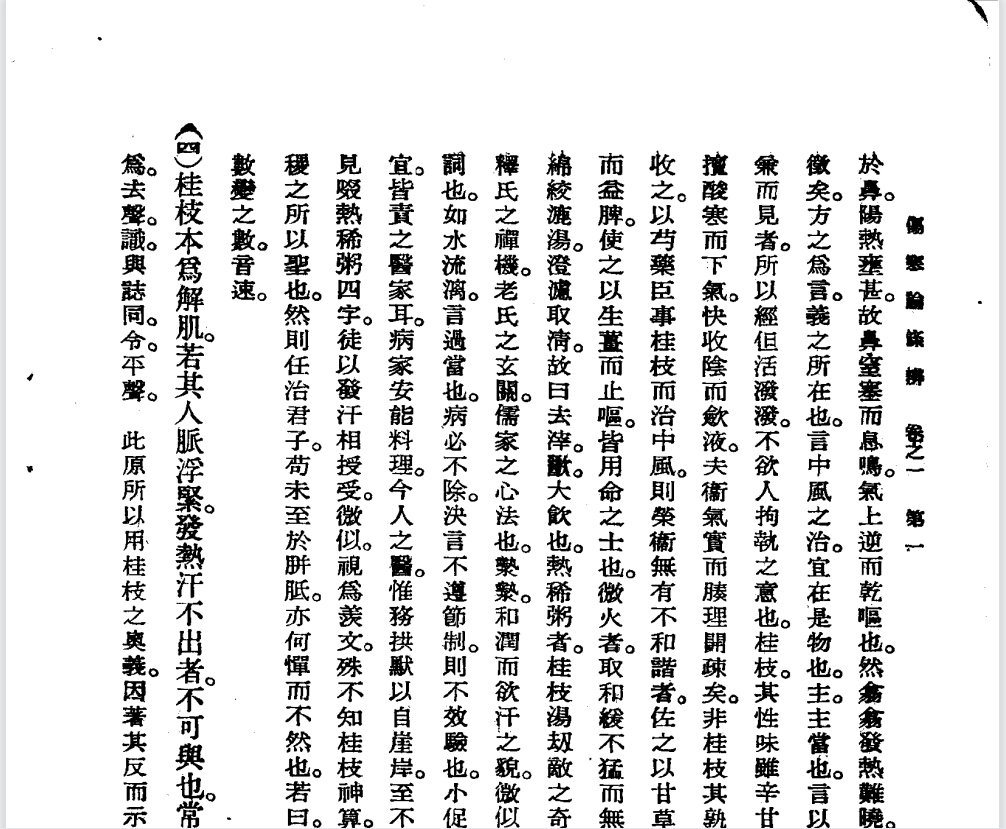 傷寒論條辨 卷之一 第一
於鼻。陽熱壅甚。故鼻窒塞而息鳴。氣上逆而乾嘔也。然翕翕發熱難曉。
徵矣。方之為言。義之所在也。言中風之治。宜在是物也。主。主當也。言以
兼而見者。所以經但活潑潑。不欲人拘執之意也。桂枝。其性味雖辛甘
擅酸寒而下氣。快收陰而斂液。夫衞氣實而腠理開疎矣。非桂枝其孰
收之。以芍藥臣事桂枝而治中風。則榮衞無有不和諧者。佐之以甘草
而益脾。使之以生薑而止嘔。皆用命之士也。微火者。取和緩不猛而無
綿絞漉湯。澄濾取清。故曰去滓。歠。大飲也。熱稀粥者。桂枝湯刼敵之奇
釋氏之禪機。老氏之玄關。儒家之心法也。漐漐。和潤而欲汗之貌。微似
詞也。如水流漓。言過當也。病必不除。決言不遵節制。則不效驗也。小促
宜。皆責之醫家耳。病家安能料理。今人之醫。惟務拱默以自崖岸。至不
見啜熱稀粥四字。徒以發汗相授受。微似。視為羨文。殊不知桂枝神算。
稷之所以聖也。然則任治君子。苟未至於胼胝。亦何憚而不然也。若曰。
數變之數。音速。
（四）桂枝本為解肌。若其人脈浮緊。發熱汗不出者。不可與也。常
為。去聲。識。與誌同。令。平聲。 此原所以用桂枝之奧義。因著其反而示